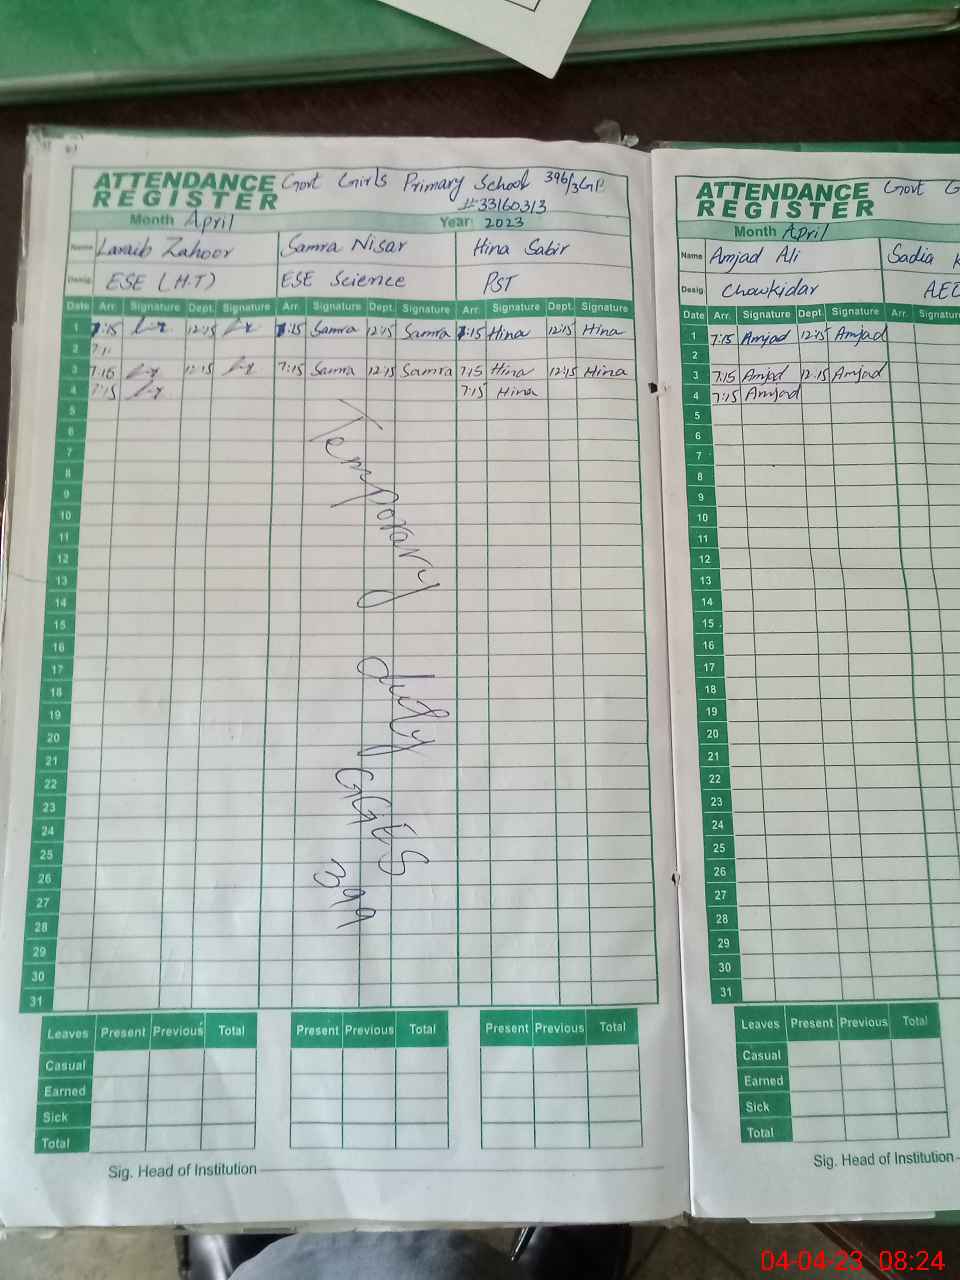 ATTENDANCE REGISTER Govt Girls Primary School 396/3GB
# 33160313
Month April Year: 2023
Name Laraib Zahoor Samra Nisar Hina Sabir
Desig. ESE (H.T) ESE Science PST
Date Arr. Signature Dept. Signature Arr. Signature Dept. Signature Arr. Signature Dept. Signature
1 7:15 12:15 7:15 Samra 12:15 Samra 7:15 Hina 12:15 Hina
2
3 7:16 12:15 7:15 Samra 12:15 Samra 7:15 Hina 12:15 Hina
4 7:15 7:15 Hina
5
6
7
8
9
10
11
12
13
14
15
16
17
18
19
20
21
22
23
24
25
26
27
28
29
30
31
Temporary duty GGES 399
Leaves Present Previous Total Present Previous Total Present Previous Total
Casual
Earned
Sick
Total
Sig. Head of Institution
ATTENDANCE REGISTER Govt G
Month April
Name Amjad Ali Sadia
Desig. Chowkidar
Date Arr. Signature Dept. Signature Arr. Signatur
1 7:15 Amjad 12:15 Amjad
2
3 7:15 Amjad 12:15 Amjad
4 7:15 Amjad
5
6
7
8
9
10
11
12
13
14
15
16
17
18
19
20
21
22
23
24
25
26
27
28
29
30
31
Leaves Present Previous Total
Casual
Earned
Sick
Total
Sig. Head of Institution
04-04-23 08:24